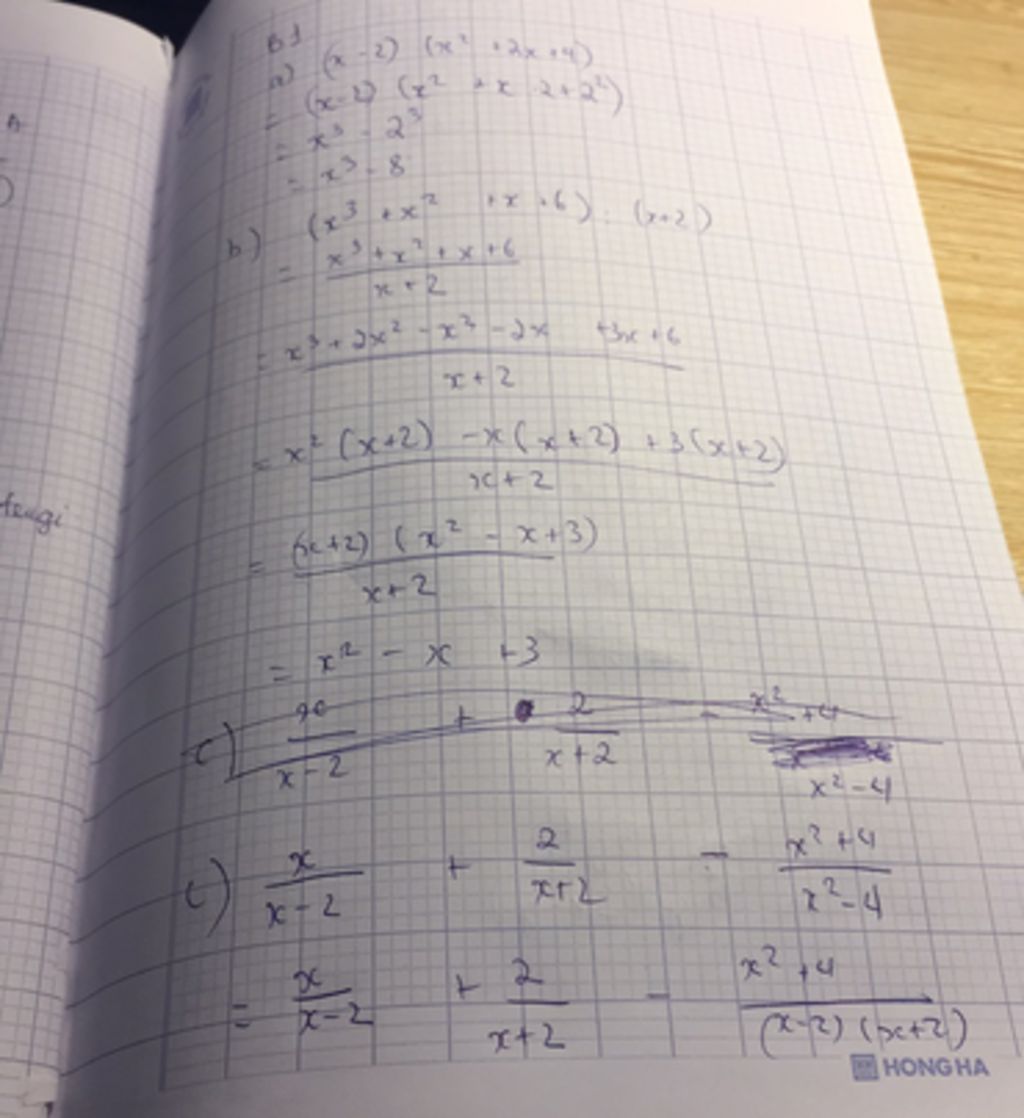 B1
a) (x-2) (x² +2x+4)
= (x-2) (x² +x .2+2²)
= x³ - 2³
= x³ - 8
b) (x³ +x² +x +6) : (x+2)
= x³ + x² + x + 6
x + 2
= x³ + 2x² - x² - 2x +3x + 6
x + 2
= x² (x+2) -x(x+2) +3(x+2)
x+2
= (x+2) (x² - x+3)
x+2
= x² - x +3
c) x + 2 - x² +4
x-2 x+2 x²-4
c) x + 2 - x²+4
x-2 x+2 x²-4
= x + 2 - x² +4
x-2 x+2 (x-2) (x+2)
HONG HA